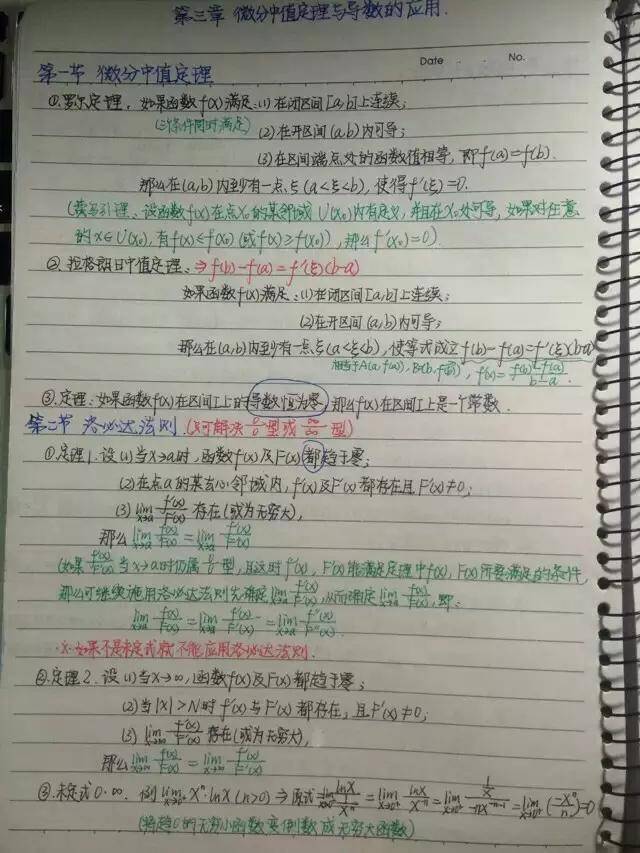 第三章 微分中值定理与导数的应用.
Date · · No.
第一节 微分中值定理
①罗尔定理. 如果函数f(x)满足:(1)在闭区间[a,b]上连续;
(三条件同时满足) (2)在开区间(a,b)内可导;
(3)在区间端点处的函数值相等, 即f(a)=f(b).
那么在(a,b)内至少有一点ξ(a<ξ<b), 使得f'(ξ)=0.
(费马引理: 设函数f(x)在点x₀的某邻域U(x₀)内有定义, 并且在x₀处可导, 如果对任意
的x∈U(x₀), 有f(x)≤f(x₀) (或f(x)≥f(x₀)), 那么f'(x₀)=0)
②拉格朗日中值定理: ⇒ f(b)-f(a)=f'(ξ)(b-a)
如果函数f(x)满足:(1)在闭区间[a,b]上连续;
(2)在开区间(a,b)内可导;
那么在(a,b)内至少有一点ξ(a<ξ<b), 使等式成立f(b)-f(a)=f'(ξ)(b-a)
相当于A(a,f(a)), B(b,f(b)), f'(x)=\frac{f(b)-f(a)}{b-a}.
③定理: 如果函数f(x)在区间I上的导数恒为零, 那么f(x)在区间I上是一个常数.
第二节 洛必达法则. (只可解决\frac{0}{0}型或\frac{∞}{∞}型)
①定理1. 设(1)当x→a时, 函数f(x)及F(x)都趋于零;
(2)在点a的某去心邻域内, f'(x)及F'(x)都存在且F'(x)≠0;
(3)\lim_{x→a}\frac{f'(x)}{F'(x)}存在(或为无穷大),
那么\lim_{x→a}\frac{f(x)}{F(x)}=\lim_{x→a}\frac{f'(x)}{F'(x)}
(如果\frac{f'(x)}{F'(x)}当x→a时仍属\frac{0}{0}型, 且这时f'(x), F'(x)能满足定理中f(x), F(x)所要满足的条件,
那么可继续施用洛必达法则先确定\lim_{x→a}\frac{f'(x)}{F'(x)}, 从而确定\lim_{x→a}\frac{f(x)}{F(x)}, 即:
\lim_{x→a}\frac{f(x)}{F(x)}=\lim_{x→a}\frac{f'(x)}{F'(x)}=\lim_{x→a}\frac{f''(x)}{F''(x)}.
※如果不是未定式就不能应用洛必达法则.
②定理2. 设(1)当x→∞, 函数f(x)及F(x)都趋于零;
(2)当|x|>N时f'(x)与F'(x)都存在, 且F'(x)≠0;
(3)\lim_{x→∞}\frac{f'(x)}{F'(x)}存在(或为无穷大),
那么\lim_{x→∞}\frac{f(x)}{F(x)}=\lim_{x→∞}\frac{f'(x)}{F'(x)}
③未定式0·∞. 例\lim_{x→0⁺}xⁿ·lnx(n>0) ⇒ 原式=\lim_{x→0⁺}\frac{lnx}{\frac{1}{xⁿ}}=\lim_{x→0⁺}\frac{lnx}{x^{-n}}=\lim_{x→0⁺}\frac{\frac{1}{x}}{-nx^{-n-1}}=\lim_{x→0⁺}(\frac{-xⁿ}{n})=0
(将趋0的无穷小函数变倒数成无穷大函数)